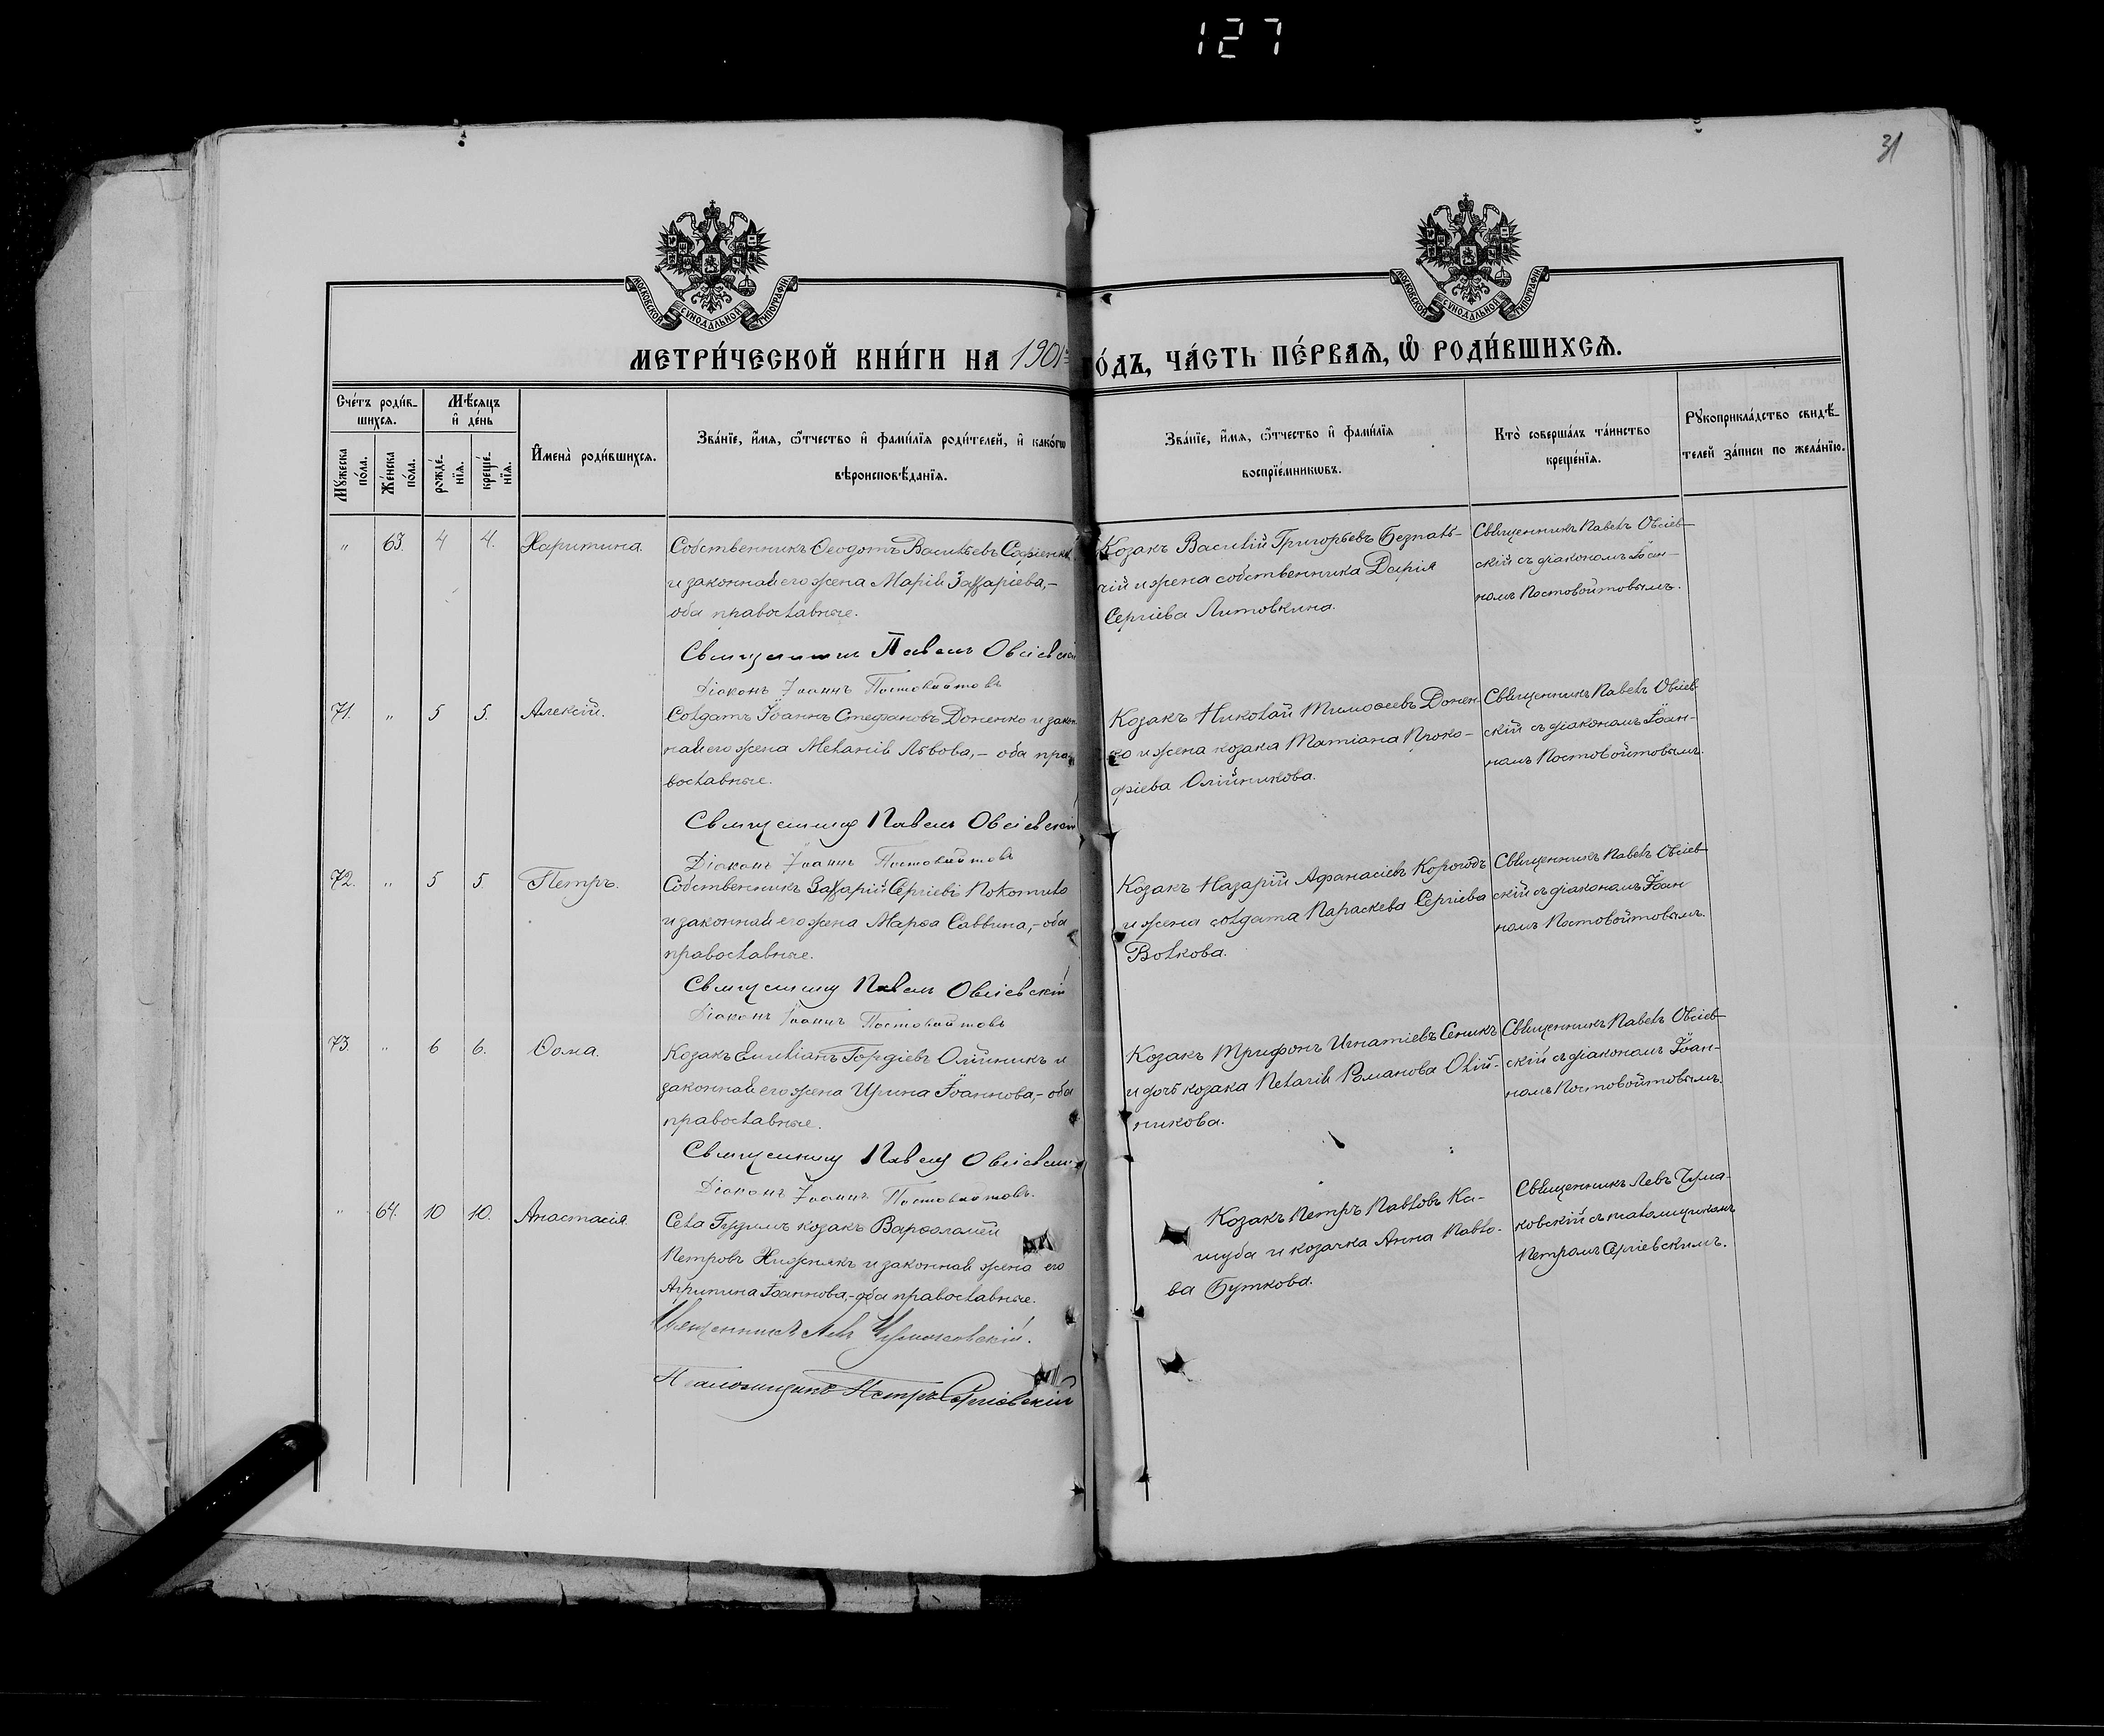 127
31
МОСКОВСКОЙ СѴНОДАЛЬНОЙ ТИПОГРАФІИ
МОСКОВСКОЙ СѴНОДАЛЬНОЙ ТИПОГРАФІИ
МЕТРИ́ЧЕСКОЙ КНИ́ГИ НА 1901й
О́ДЪ, ЧА́СТЬ ПЕ́РВАѦ, Ѡ҆ РОДИ́ВШИХСѦ.
Сче́тъ роди́в-
шихсѧ.
Мѣ́сѧцъ
и҆ де́нь
Мꙋ́жеска
по́ла.
Же́нска
по́ла.
рожде́-
нїѧ.
креще́-
нїѧ.
И҆мена̀ роди́вшихсѧ.
Зва́нїе, и҆́мѧ, ѻ҆́тчество и҆ фамѝлїѧ роди́телей, и҆ како́гѡ
вѣроисповѣ́данїѧ.
Зва́нїе, и҆́мѧ, ѻ҆́тчество и҆ фамѝлїѧ
воспрїе́мникѡвъ.
Кто̀ соверша́лъ та́инство
креще́нїѧ.
Рꙋкоприкла́дство свидѣ́-
телей за́писи по жела́нїю.
" 63. 4 4. Харитина.
Собственникъ Ѳеодотъ Васильевъ
и законная его жена Марія Захаріева,-
оба православные.
Священникъ Павелъ Овсіевскій
Діаконъ Іоаннъ Постовойтовъ
Козакъ Василій Григорьевъ Безпаль-
чій и жена собственника Дарія
Сергіева Литовкина.
Священникъ Павелъ Овсіев-
скій съ діакономъ Іоан-
номъ Постовойтовымъ.
71. " 5 5. Алексій.
Солдатъ Іоаннъ Стефановъ Доненко и закон
ная его жена Меланія Львова,- оба пра
вославные.
Священникъ Павелъ Овсіевскій
Діаконъ Іоаннъ Постовойтовъ
Козакъ Николай Тимоѳеевъ Донен
ко и жена козака Татіана Проко-
фіева Олійникова.
Священникъ Павелъ Овсіев
скій съ діакономъ Іоан-
номъ Постовойтовымъ.
72. " 5 5. Петръ.
Собственникъ Захарій Сергіевъ
и законная его жена Марѳа Саввина,- оба
православные.
Священникъ Павелъ Овсіевскій
Діаконъ Іоаннъ Постовойтовъ
Козакъ Назарій Афанасіевъ Корогодъ
и жена солдата Параскева Сергіева
Волкова.
Священникъ Павелъ Овсіев
скій съ діакономъ Іоан
номъ Постовойтовымъ.
73. " 6 6. Ѳома.
Козакъ Емиліанъ Гордіевъ Олійникъ и
законная его жена Ирина Іоаннова,- оба
православные.
Священникъ Павелъ Овсіевскій
Діаконъ Іоаннъ Постовойтовъ.
Козакъ Трифонъ Игнатіевъ Сеникъ
и дочь козака Пелагія Романова Олій-
никова.
Священникъ Павелъ Овсіев
скій съ діакономъ Іоан-
номъ Постовойтовымъ.
" 64. 10 10. Анастасія.
Села Гудимъ козакъ Варѳоломей
Петровъ Хижнякъ и законная жена его
Агрипина Іоаннова,- оба православные.
Священникъ Левъ Чумаковскій.
Псаломщикъ Петръ Сергіевскій
Козакъ Петръ Павловъ Ка-
шуба и козачка Анна Павло-
ва Буткова.
Священникъ Левъ Чума-
ковскій съ псаломщикомъ
Петромъ Сергіевскимъ.